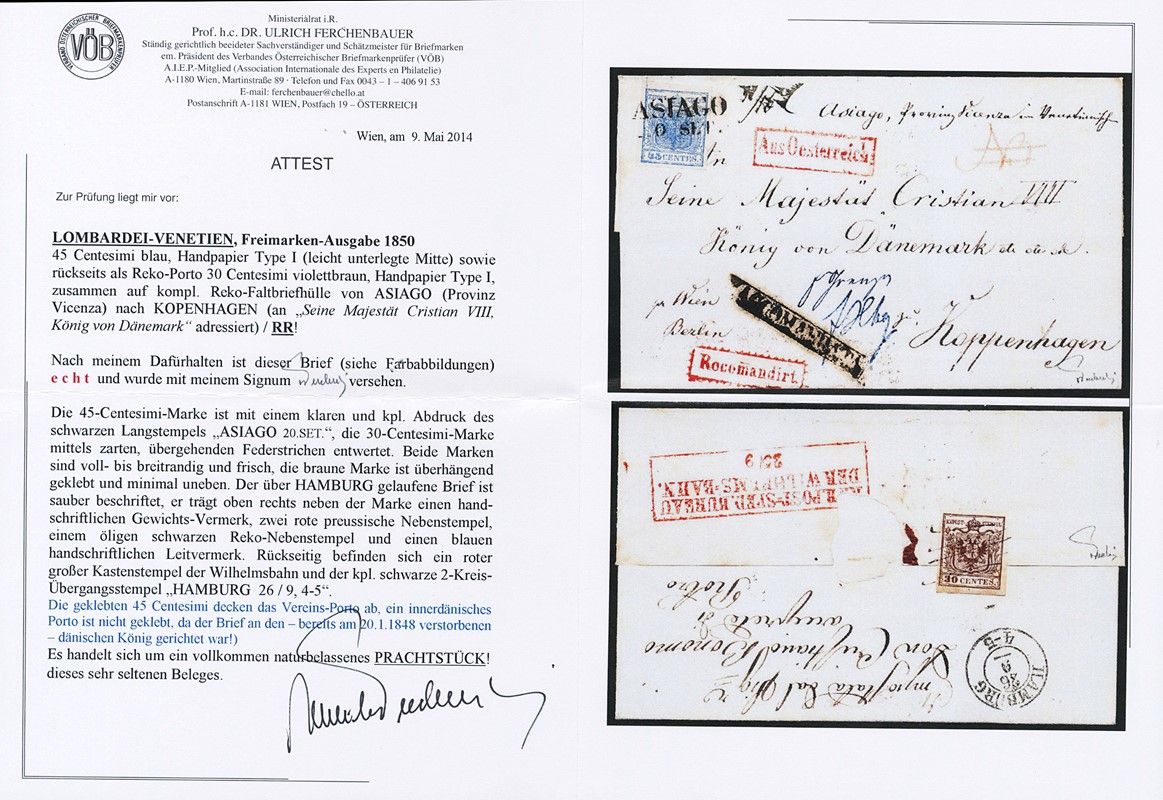 VERBAND ÖSTERREICHISCHER BRIEFMARKENPRÜFER
VÖB
Ministerialrat i.R.
Prof. h.c. DR. ULRICH FERCHENBAUER
Ständig gerichtlich beeideter Sachverständiger und Schätzmeister für Briefmarken
em. Präsident des Verbandes Österreichischer Briefmarkenprüfer (VÖB)
A.I.E.P.-Mitglied (Association Internationale des Experts en Philatelie)
A-1180 Wien, Martinstraße 89 · Telefon und Fax 0043 – 1 – 406 91 53
E-mail: ferchenbauer@chello.at
Postanschrift A-1181 WIEN, Postfach 19 – ÖSTERREICH
Wien, am 9. Mai 2014
ATTEST
Zur Prüfung liegt mir vor:
LOMBARDEI-VENETIEN, Freimarken-Ausgabe 1850
45 Centesimi blau, Handpapier Type I (leicht unterlegte Mitte) sowie
rückseits als Reko-Porto 30 Centesimi violettbraun, Handpapier Type I,
zusammen auf kompl. Reko-Faltbriefhülle von ASIAGO (Provinz
Vicenza) nach KOPENHAGEN (an „Seine Majestät Cristian VIII,
König von Dänemark“ adressiert) / RR!
Nach meinem Dafürhalten ist dieser Brief (siehe Farbabbildungen)
echt und wurde mit meinem Signum versehen.
Die 45-Centesimi-Marke ist mit einem klaren und kpl. Abdruck des
schwarzen Langstempels „ASIAGO 20.SET.“, die 30-Centesimi-Marke
mittels zarten, übergehenden Federstrichen entwertet. Beide Marken
sind voll- bis breitrandig und frisch, die braune Marke ist überhängend
geklebt und minimal uneben. Der über HAMBURG gelaufene Brief ist
sauber beschriftet, er trägt oben rechts neben der Marke einen hand-
schriftlichen Gewichts-Vermerk, zwei rote preussische Nebenstempel,
einem öligen schwarzen Reko-Nebenstempel und einen blauen
handschriftlichen Leitvermerk. Rückseitig befinden sich ein roter
großer Kastenstempel der Wilhelmsbahn und der kpl. schwarze 2-Kreis-
Übergangsstempel „HAMBURG 26 / 9, 4-5“.
Die geklebten 45 Centesimi decken das Vereins-Porto ab, ein innerdänisches
Porto ist nicht geklebt, da der Brief an den – bereits am 20.1.1848 verstorbenen
– dänischen König gerichtet war!)
Es handelt sich um ein vollkommen naturbelassenes PRACHTSTÜCK!
dieses sehr seltenen Beleges.
ASIAGO
0 SET.
45 CENTES.
Asiago, Provinz Vicenza im Venetianisch
Aus Oesterreich
Seine Majestät Cristian VIII
König von Dänemark
pr Wien
Berlin
zu
Koppenhagen
Recomandirt.
POST-SPED. BUREAU
DER WILHELMS-BAHN.
25/9
30 CENTES.
HAMBURG
26
9
4-5